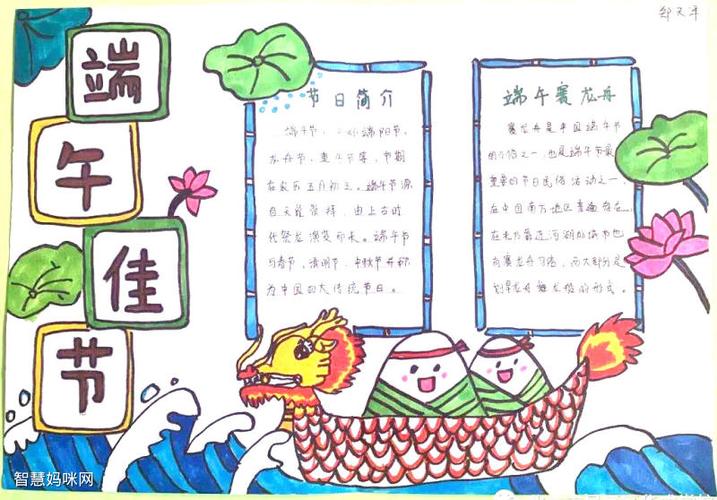 端
午
佳
节
节日简介
端午节,小端阳节、
龙舟节、重午节等,节期
在农历五月初五。端午节源
自天象崇拜,由上古时
代祭龙演变而来。端午节
与春节、清明节、中秋节并称
为中国四大传统节日。
端午赛龙舟
赛龙舟是中国端午节
的习俗之一,也是端午节最
重要的节日民俗活动之一,
在中国南方地区普遍存在,
在北方靠近河湖的城市也
有赛龙舟习俗,而大部分是
划旱龙舟舞龙船的形式。
智慧妈咪网